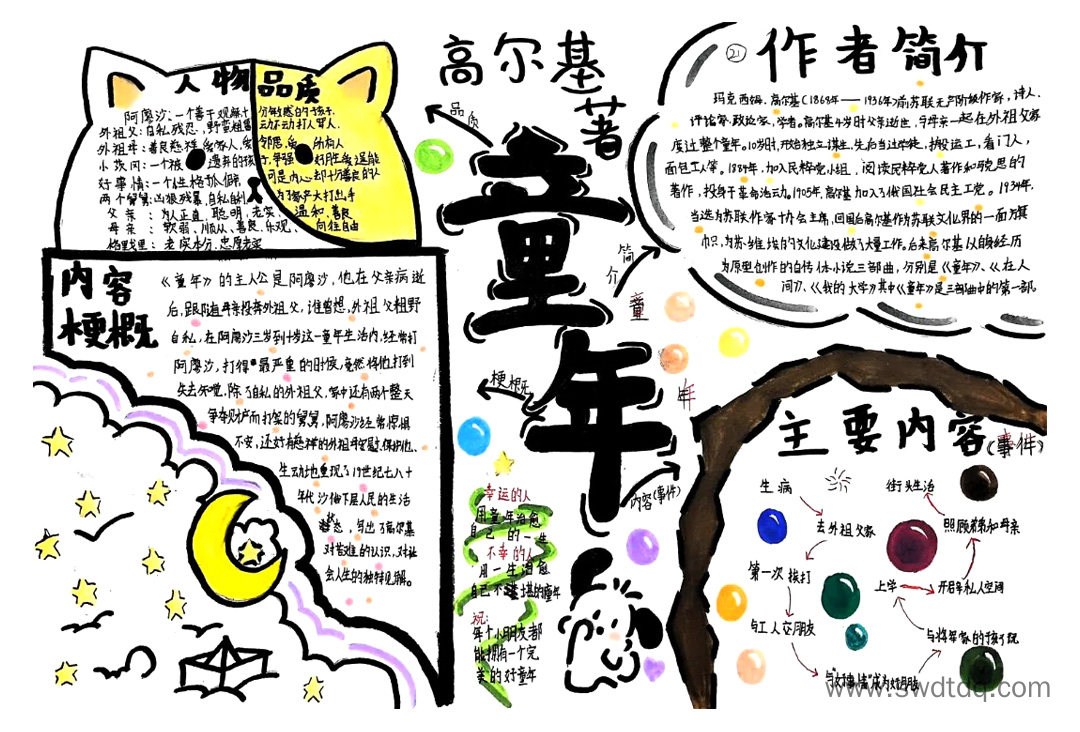 人物品质
阿廖沙:一个善于观察十分敏感的孩子
外祖父:自私残忍,野蛮粗暴动不动打人骂人.
外祖母:善良慈祥
好事情:一个性格
两个舅舅:凶狠残暴,自私自利为了
父亲:为人正直,聪明,老实,温和,善良
母亲:软弱,顺从,善良,乐观、向往自由
老实本分,忠厚老实
内容
梗概
《童年》的主人公是阿廖沙,他在父亲病逝
后,跟随母亲投奔外祖父,谁曾想,外祖父粗野
自私,在阿廖沙三岁到十岁这一童年生活内,经常打
阿廖沙,打得最严重的时候,竟然将他打到
失去知觉,除了自私的外祖父,家中还有两个整天
争夺财产而打架的舅舅,阿廖沙经常
不安,还好有慈祥的外祖母安慰,保护他.
生动地重现了19世纪七八十
年代沙俄下层人民的生活
状态,写出了高尔基
对苦难的认识,对社
会人生的独特见解。
高尔基
著
童年
品质
简介
童
年
梗概
内容(事件)
幸运的人
用童年治愈
自己的一生
不幸的人
用一生治愈
自己不堪的童年
祝:
每个小朋友都
能拥有一个完
美的好童年
21
作者简介
玛克西姆.高尔基(1868年——1936年)前苏联无产阶级作家,诗人.
评论家.政论家,学者。高尔基4岁时父亲逝世,与母亲一起在外祖父家
度过童年。10岁时,开始独立谋生,先后当过学徒、搬运工,看门人,
面包工人等。1884年,加入民粹党小组,阅读民粹党人著作和马克思的
著作,投身于革命活动。1905年,高尔基加入了俄国社会民主工党。1934年,
当选为苏联作家协会主席,回国后高尔基作为苏联文化界的一面旗
帜,为苏维埃的文化建设做了大量工作。后来高尔基以自身经历
为原型创作的自传体小说三部曲,分别是《童年》、《在人
间》、《我的大学》其中《童年》是三部曲中的第一部.
主要内容(事件)
生病
去外祖父家
第一次挨打
与工人交朋友
与"好事情"成为好朋友
与将军家的孩子玩
上学
开启自私人空间
照顾弟弟和母亲
街头生活
www.swdtdq.com